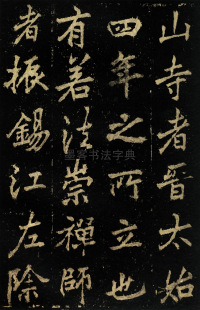 山寺者晉太始
四年之所立也
有若法崇禪師
者振錫江左除
墨寶书法字典